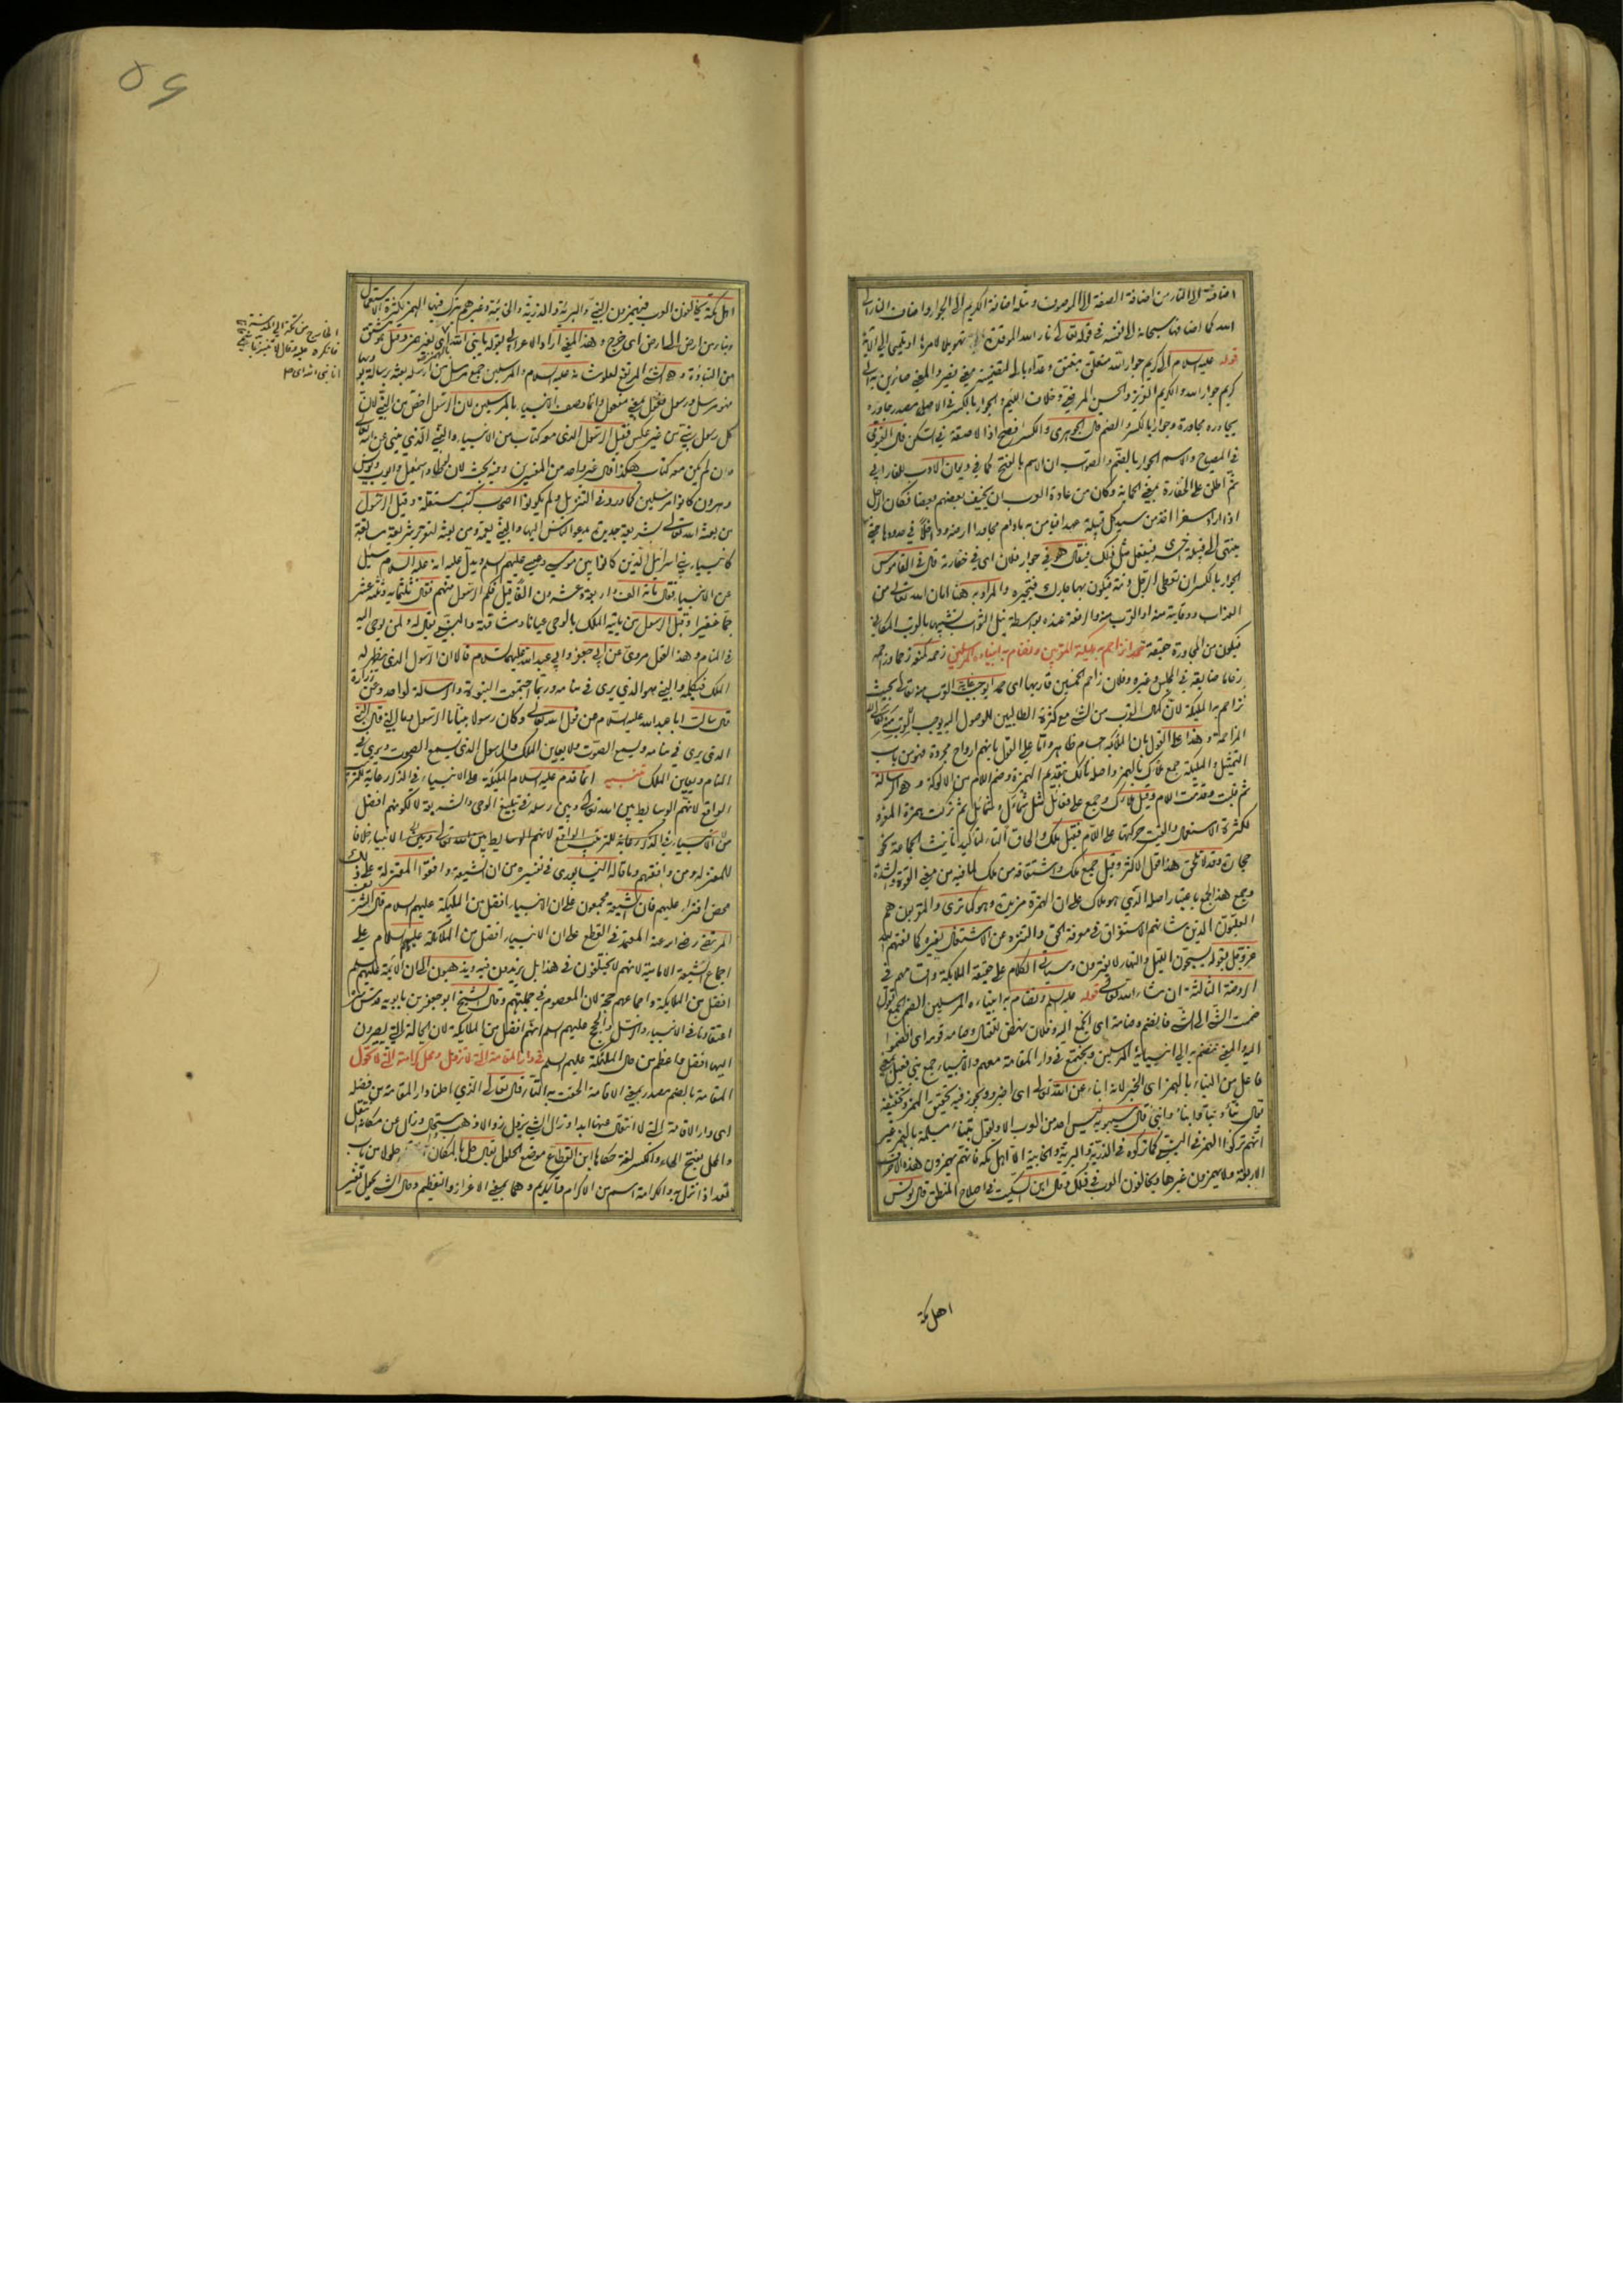 اضافة الى النار من اضافة الصفة الى الموصوف ومثله اضافة الكريم الى الجوار واضاف النار الى
الله كما اضافها سبحانه الى نفسه في قوله تعالى نار الله الموقدة تهويلا لامرها او تلميحا الى الآية
قوله عليه السلام الى كريم جوار الله متعلق بنعتق وعداه بالى لتضمينه معنى نصير والمعنى صائرين به الى
كريم جوار الله والكريم العزيز والحسن المرضي وخلاف اللئيم والجوار بالكسر في الاصل مصدر جاوره
يجاوره مجاورة وجوارا بالكسر والضم قال الجوهري والكسر افصح اذا لاصقه في السكن قال الفيومي
في المصباح والاسم الجوار بالضم والصواب ان الاسم بالفتح كما في ديوان الادب للفارابي
ثم اطلق على الخفارة بمعنى الحماية وكان من عادة العرب ان يخيف بعضهم بعضا فكان الرجل
اذا اراد سفرا اخذ من سيد كل قبيلة عهدا فيامن به ما دام مجاورا ارضه وداخلا في حدودها حتى
ينتهي الى قبيلة اخرى فيفعل مثل ذلك فيقال هو في جوار فلان اي في خفارته قال في القاموس
الجوار بالكسر ان تعطي الرجل ذمة فيكون بها جارك فتجيره والمراد به هنا امان الله تعالى من
العذاب ووقايته منه او القرب منه والرفعة عنده بواسطة نيل الثواب تشبيها بالقرب المكاني
فيكون من المجاورة حقيقة حمدا نزاحم به ملائكته المقربين ونضام به انبياءه المرسلين زحمه كمنعه زحما وزاحمه
زحاما ضايقه في المجلس وغيره وفلان زاحم الخمسين قاربها اي حمدا يوجب غاية القرب منه تعالى بحيث
نزاحم به الملائكة لان كمال القرب من الشيء مع كثرة الطالبين للوصول اليه يوجب
المزاحمة وهذا على القول بان الملائكة اجسام ظاهر واما على القول بانهم ارواح مجردة فهو من باب
التمثيل والملائكة جمع ملأك بالهمز واصله مألك بتقديم الهمزة وضم اللام من الالوكة وهي الرسالة
ثم قلبت وقدمت اللام وقيل ملأك وجمع على فعائل مثل شمأل وشمائل ثم تركت همزة المفرد
لكثرة الاستعمال والقيت حركتها على اللام فقيل ملك والحاق التاء لتأكيد تأنيث الجماعة نحو
حجارة وقد لا تلحق هذا قول الاكثر وقيل جمع ملك واشتقاقه من ملك لما فيه من معنى القوة والشدة
وجمع هذا الجمع باعتبار اصله الذي هو ملأك على ان الهمزة مزيدة وهو كما ترى والمقربون هم
العليون الذين شانهم الاستغراق في معرفة الحق والتنزه عن الاشتغال بغيره كما نعتهم الله
عز وجل بقوله يسبحون الليل والنهار لا يفترون وسياتي الكلام على حقيقة الملائكة واقسامهم في
الروضة الثالثة ان شاء الله تعالى قوله عليه السلم ونضام به انبياءه المرسلين الضم الجمع تقول
ضممت الشيء الى الشيء فانضم وضامه اي الجمع اليه وفلان ينهض للقتال وضامه قومه اي انضموا
اليه والمعنى ننضم به الى انبيائه المرسلين ونجتمع في دار المقامة معهم والانبياء جمع نبي فعيل بمعنى
فاعل من النبأ بالهمز اي الخبر لانه انبأ عن الله تعالى اي اخبر ويجوز فيه تحقيق الهمز وتخفيفه
يقال نبأ ونبّأ وانبأ قال سيبويه ليس احد من العرب الا ويقول تنبأ مسيلمة بالهمز غير
انهم تركوا الهمز في النبي كما تركوه في الذرية والبرية والخابية الا اهل مكة فانهم يهمزون هذه الاحرف
الاربعة ولا يهمزون غيرها ويخالفون العرب في ذلك وقال ابن السكيت في اصلاح المنطق قال يونس
اهل مكة
٥٤
اهل مكة يخالفون العرب فيهمزون النبي والبرية والذرية والخابية وغيرهم يترك فيها الهمز لكثرة الاستعمال
ونبأ من ارض الى ارض اي خرج وهذا المعنى اراد الاعرابي بقوله يا نبيء الله اي لغير همز وقيل هو مشتق
من النباوة وهي الشيء المرتفع لعلو شانه عليه السلام والمرسلين جمع مرسل من ارسله بعثه برسالة
فهو مرسل ورسول فعول بمعنى مفعول وانما وصف الانبياء بالمرسلين لان الرسول اخص من النبي لان
كل رسول نبي من غير عكس فقيل الرسول الذي معه كتاب من الانبياء والنبي الذي ينبئ عن الله
وان لم يكن معه كتاب هكذا قال غير واحد من المفسرين وفيه بحث لان لوطا واسمعيل وايوب ويونس
وهرون كانوا مرسلين كما ورد في التنزيل ولم يكونوا اصحاب كتب مستقلة وقيل الرسول
من بعثه الله تعالى بشريعة جديدة يدعو الناس اليها والنبي يعمه ومن بعثه لتقرير شريعة سابقة
كانبياء بني اسرائيل الذين كانوا بين موسى وعيسى عليهم السلم ويدل عليه انه عليه السلام سئل
عن الانبياء فقال مائة الف واربعة وعشرون الفا قيل فكم الرسول منهم فقال ثلثمائة وثلثة عشر
جما غفيرا وقيل الرسول من ياتيه الملك بالوحي عيانا ومشافهة والنبي يقال له ولمن يوحى اليه
في المنام وهذا القول مروي عن ابي جعفر وابي عبد الله عليهما السلام قالا ان الرسول الذي يظهر له
الملك فيكلمه والنبي هو الذي يرى في منامه وربما اجتمعت النبوة والرسالة لواحد وعن زرارة
قال سالت ابا عبد الله عليه السلام عن قول الله تعالى وكان رسولا نبيا ما الرسول وما النبي قال النبي
الذي يرى في منامه ويسمع الصوت ولا يعاين الملك والرسول الذي يسمع الصوت ويرى في
المنام ويعاين الملك تنبيه انما قدم عليه السلام الملائكة على الانبياء في الذكر رعاية للترتيب
الواقع لانهم الوسايط بين الله تعالى وبين رسله في تبليغ الوحي والشريعة لا لكونهم افضل
من الانبياء في الذكر رعاية للترتيب الواقع لانهم الوسايط بين الله تعالى وبين الانبياء خلافا
للمعتزلة ومن وافقهم وما قاله النيسابوري في تفسيره من ان الشيعة وافقوا المعتزلة على ذلك
محض افتراء عليهم فان الشيعة مجمعون على ان الانبياء افضل من الملائكة عليهم السلام قال الشريف
المرتضى رضي الله عنه المعتمد في القطع على ان الانبياء افضل من الملائكة عليهم السلام على
اجماع الشيعة الامامية لانهم لا يختلفون في هذا بل يزيدون فيه ويذهبون الى ان الائمة عليهم السلم
افضل من الملائكة واجماعهم حجة لان المعصوم في جملتهم وقال الشيخ ابو جعفر بن بابويه قدس سره
اعتقادنا في الانبياء والرسل والحجج عليهم السلم انهم افضل من الملائكة لان الحالة التي يصيرون
اليها افضل واعظم من حال الملائكة عليهم السلم في دار المقامة التي لا تزول ومحل كرامته التي لا تحول
المقامة بالضم مصدر بمعنى الاقامة الحقت به التاء قال تعالى الذي احلنا دار المقامة من فضله
اي دار الاقامة التي لا انتقال عنها ابدا وزال الشيء يزول زوالا ذهب واستحال وزال عن مكانه انتقل
والمحل بفتح الحاء والكسر لغة حكاها ابن القطاع موضع الحلول يقال حل بالمكان حلولا من باب
قعد اذا نزل به والكرامة اسم من الاكرام والتكريم وهما بمعنى الاعزاز والتعظيم وحال الشيء يحول تغير
الخارج من مكة الى المدينة
فانكر عليه وقال لا
انا نبي الله